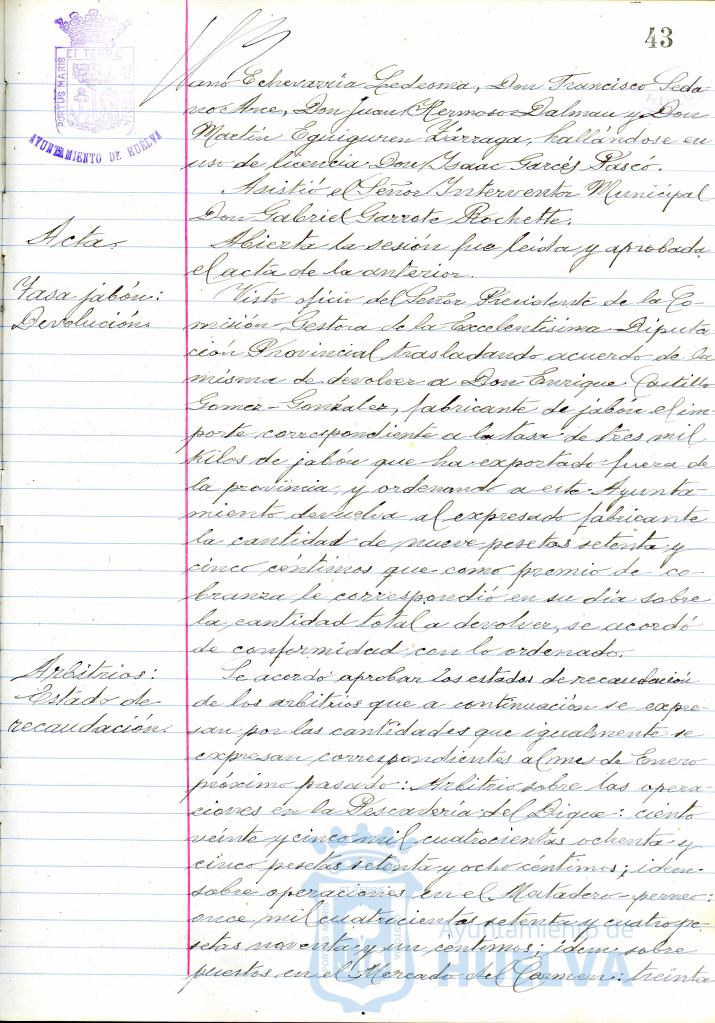 43
PORTUS MARIS
ET TERRÆ
CUSTODIA
AYUNTAMIENTO DE HUELVA
Echevarría Ledesma, Don Francisco Seda
no Arce, Don Juan Hermoso Dalmau y Don
Martín Eguiguren Zárraga, hallándose en
uso de licencia Don Isaac Garcés Pascó.
Asistió el Señor Interventor Municipal
Don Gabriel Garrote Rochette.
Acta.
Abierta la sesión fue leída y aprobada
el acta de la anterior.
Tasa jabón:
Devolución.
Visto oficio del Señor Presidente de la Co-
misión Gestora de la Excelentísima Diputa
ción Provincial trasladando acuerdo de la
misma de devolver a Don Enrique Castillo
Gomez-González, fabricante de jabón el im-
porte correspondiente a la tasa de tres mil
kilos de jabón que ha exportado fuera de
la provincia, y ordenando a este Ayunta-
miento devuelva al expresado fabricante
la cantidad de nueve pesetas setenta y
cinco céntimos que como premio de co-
branza le correspondió en su día sobre
la cantidad total a devolver, se acordó
de conformidad con lo ordenado.
Arbitrios:
Estado de
recaudación.
Se acordó aprobar los estados de recaudación
de los arbitrios que a continuación se expre-
san por las cantidades que igualmente se
expresan correspondientes al mes de Enero
próximo pasado: Arbitrio sobre las opera-
ciones en la Pescadería del Dique: ciento
veinte y cinco mil cuatrocientas ochenta y
cinco pesetas setenta y ocho céntimos; idem
sobre operaciones en el Matadero
once mil cuatrocientas setenta y cuatro pe-
setas noventa y un céntimos; idem sobre
puestos en el Mercado del Carmen: treinta
Ayuntamiento de
HUELVA